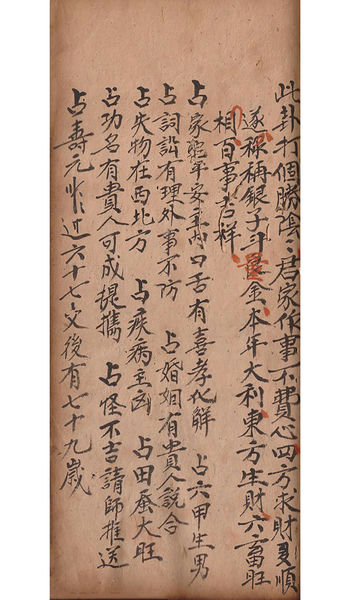 此卦打個勝陰〻君家作事不費心四方求財多順
遂秤稱銀子斗量金本年大利東方生財六畜旺
相百事吉祥
占家宅平安主内口舌有喜孝化解 占六甲生男
占詞訟有理外事不防 占婚姻有貴人說合
占失物在西北方 占疾病主凶 占田蚕大旺
占功名有貴人可成提攜 占怪不吉請師推送
占壽元近六十七欠後有七十九歲